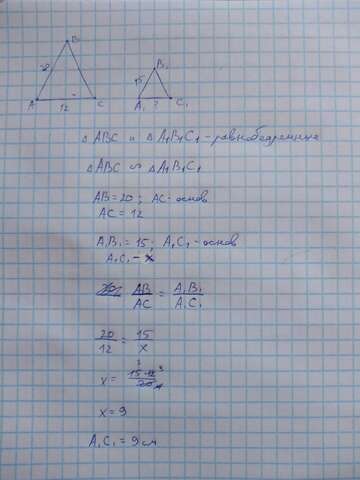 B B₁
20 15
A 12 C A₁ ? C₁
△ ABC и △ A₁B₁C₁ - равнобедренные
△ ABC ∽ △ A₁B₁C₁
AB = 20 ; AC - основ
AC = 12
A₁B₁ = 15 ; A₁C₁ - основ
A₁C₁ - x
AB/AC = A₁B₁/A₁C₁
20/12 = 15/x
x = 15·12/20
x = 9
A₁C₁ = 9 см